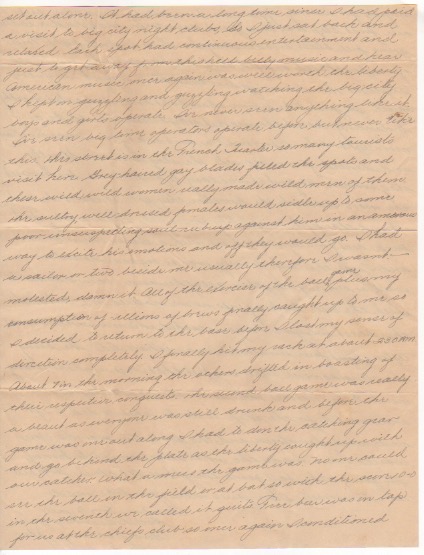 set out alone. It had been a long time since I had paid
a visit to big city night clubs. So I just sat back and
relaxed. Each spot had continuous entertainment and
just to get away from the hill billy music and hear
American music once again was well worth the liberty
I kept on guzzling and guzzling watching the big city
boys and girls operate. I've never seen anything like it.
I've seen big time operators operate before but never like
this. This street is in the French Quarter so many tourists
visit here. Grey haired gay blades filled the spots and
these wild wild women really made wild men of them.
The sultry well dressed females would sidle up to some
poor unsuspecting soul rub up against him in an amorous
way to excite his emotions and off they would go. I had
a sailor or two beside me usually therefore I wasn't
molested, damn it. All of the exercise of the ball game plus my
consumption of zillions of brews finally caught up to me so
I decided to return to the base before I lost my sense of
direction completely. I finally hit my sack at about
About in the morning the others drifted in boasting of
their respective conquests. The second ball game was really
a beaut as everyone was still drunk and before the
game was out along I had to don the catching gear
and go behind the plate as the liberty caught up with
our catcher. What a mess the game was. No one could
see the ball in the field or at bat so with the score
in the seventh we called it quits. Free beer was on tap
for us at the chiefs club so once again I conditioned